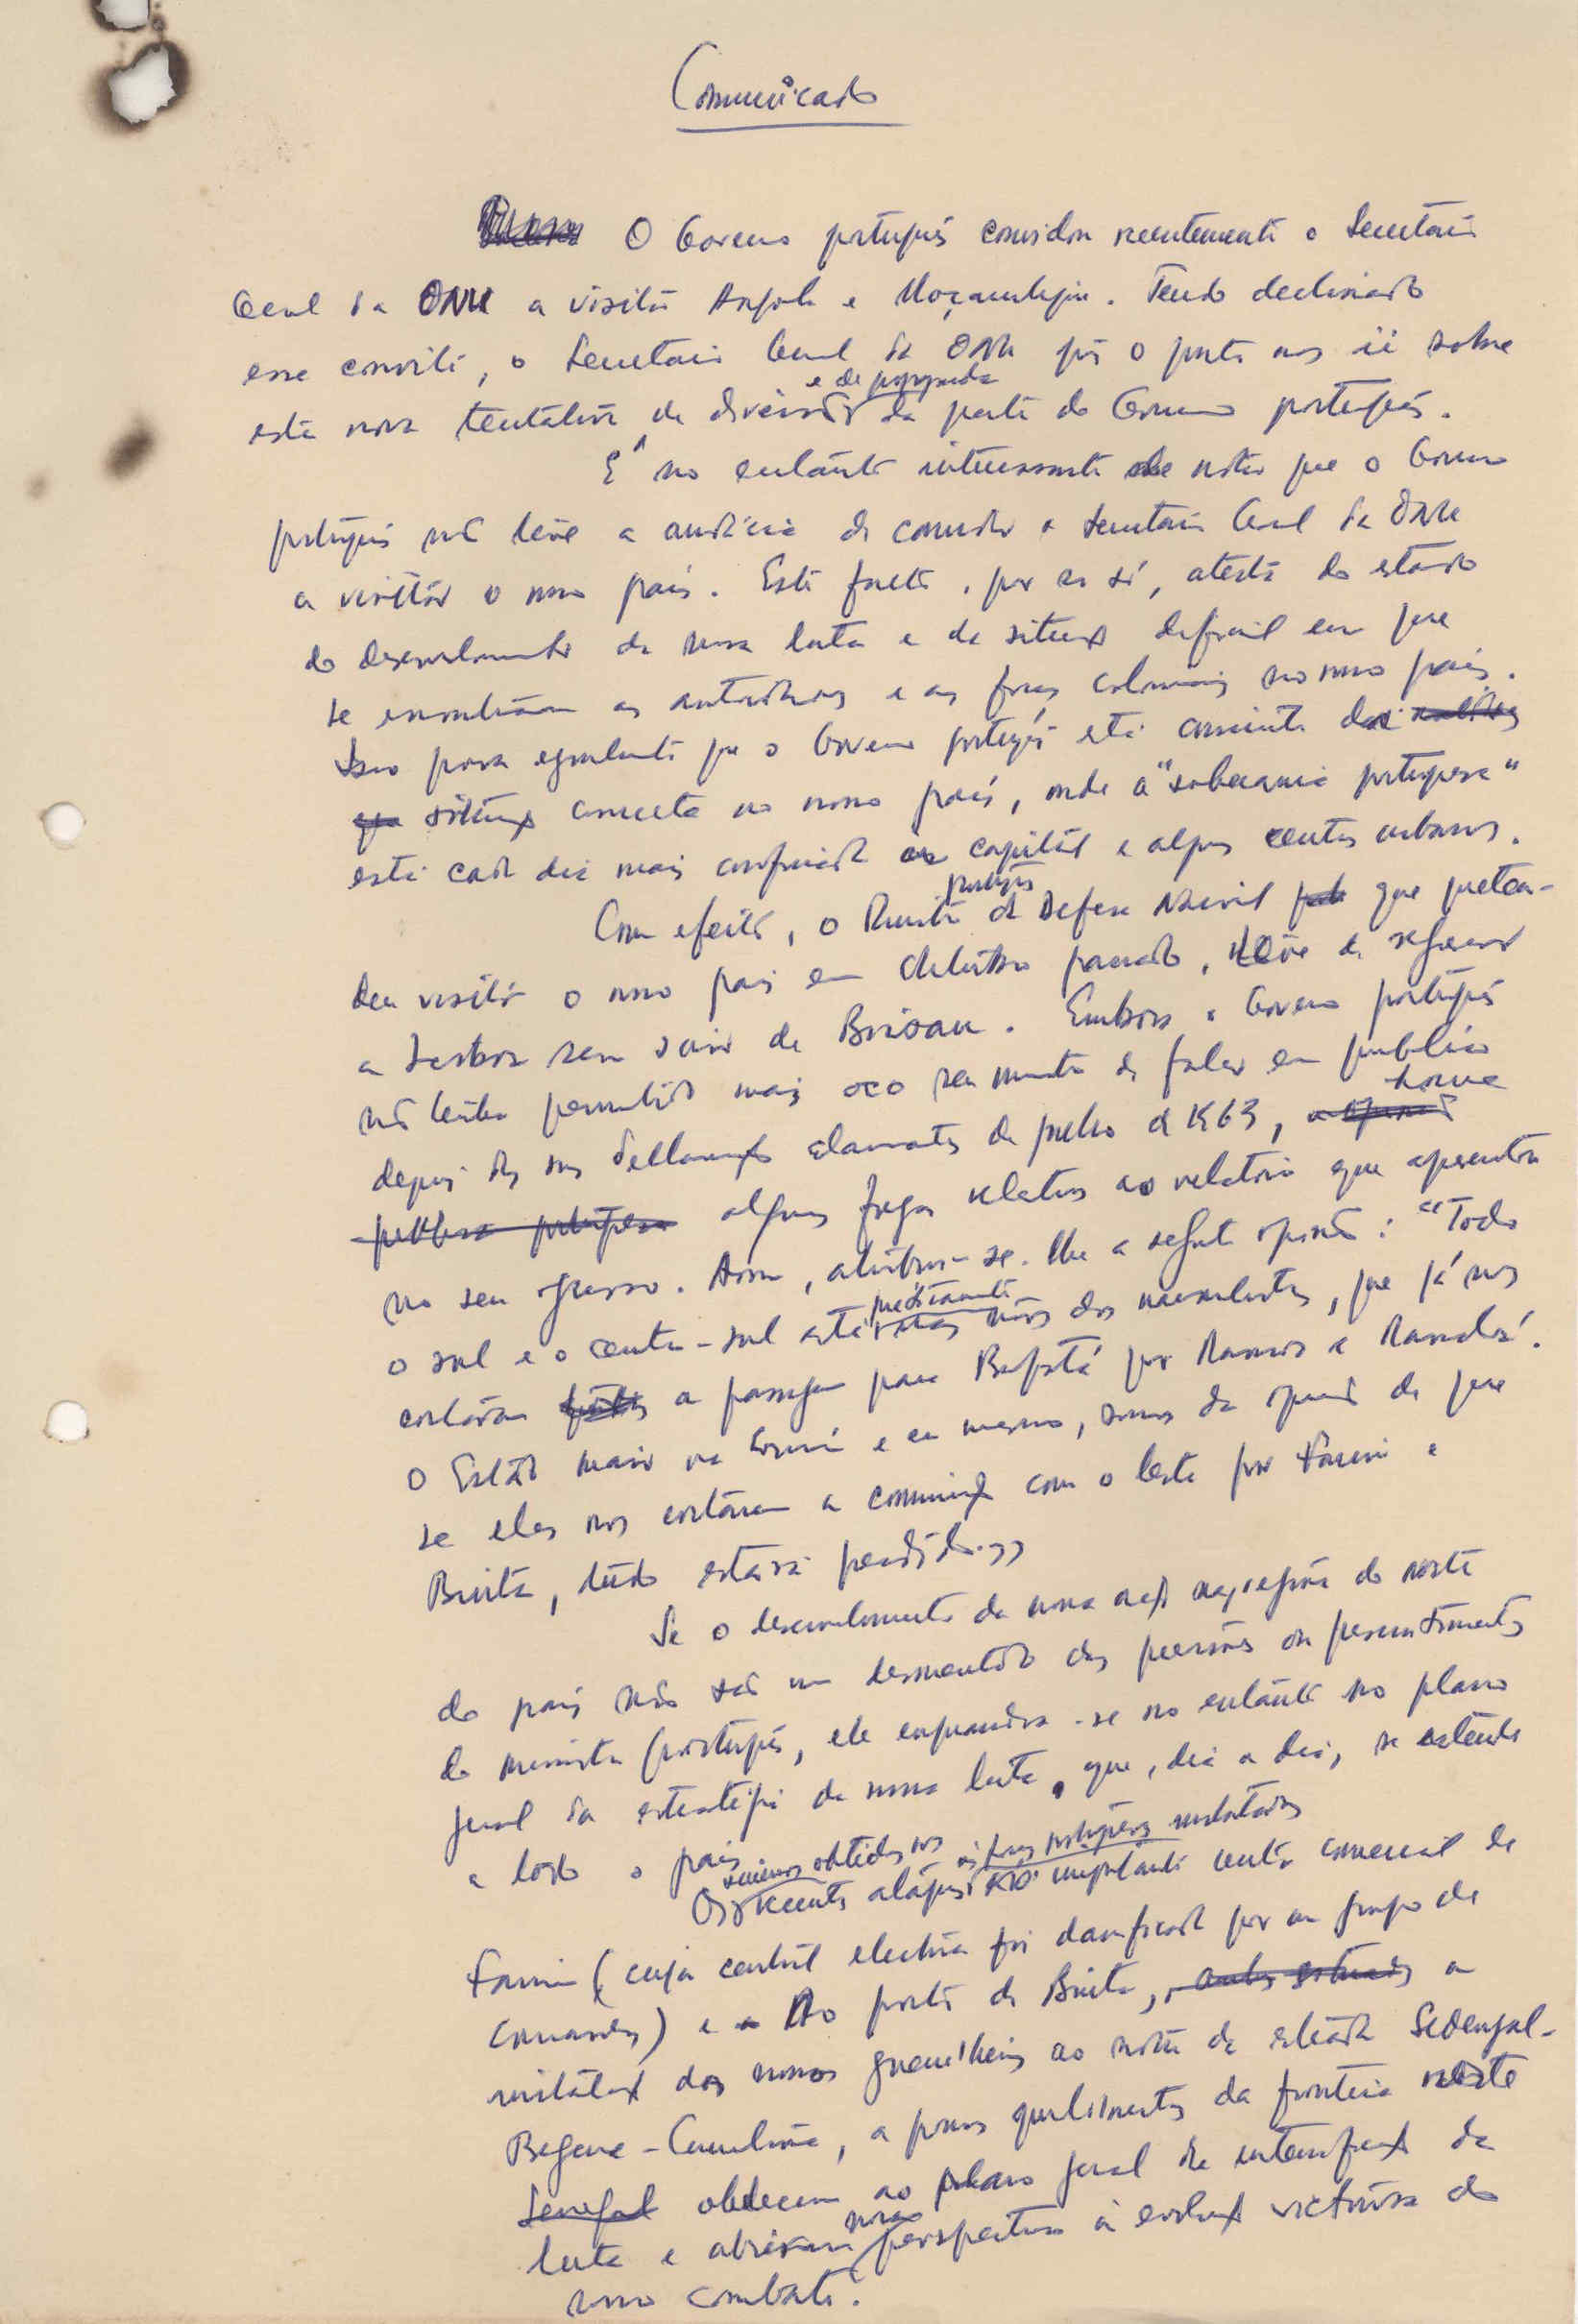 Comunicado
O Governo português convidou recentemente o Secretário
Geral da ONU a visitar Angola e Moçambique. Tendo declinado
esse convite, o Secretário Geral da ONU pôs o ponto nos ii sobre
e de propaganda
esta nova tentativa de diversão da parte do Governo português.
É no entanto interessante de notar que o Governo
português não teve a audácia de convidar o Secretário Geral da ONU
a visitar o nosso país. Este facto, por si só, atesta do estado
do desenvolvimento da nossa luta e da situação difícil em que
se encontram as autoridades e as forças coloniais no nosso país.
Isso prova egualmente que o Governo português está consciente da
situação concreta no nosso país, onde a "soberania portuguesa"
está cada dia mais confinada à capital e alguns centos urbanos.
português
Com efeito, o Ministro da Defesa Nacional que preten-
deu visitar o nosso país em passado, teve de regressar
a Lisboa sem sair de Bissau. Embora o Governo português
não tenha permitido mais ao seu ministro de falar em público
depois das suas declarações alarmantes de julho de 1963, houve
algumas fugas relativas ao relatório que apresentou
no seu regresso. Assim, atribui-se-lhe a seguinte opinião: "Todo
praticamente
o sul e o centro-sul está nas mãos dos nacionalistas, que já nos
cortaram a passagem para Bafatá por Mansoa e Mansabá.
O Estado maior na Guiné e eu mesmo, somos da opinião de que
se eles nos cortarem a comunicação com o leste por Farim e
Binta, tudo estará perdido."
Se o desenvolvimento da nossa acção na região do norte
do país não são um desmentido das previsões ou pressentimentos
do ministro português, ele enquandra-se no entanto no plano
geral da estratégia da nossa luta, que, dia a dia, se estende
a todo o país.
sucessos obtidos nos às forças portuguesas instaladas
Os recentes ataques importante centro comercial de
Farim (cuja central eléctrica foi danificada por um grupo de
comandos) e no porto de Binta, a
instalação dos nossos guerrilheiros ao norte da estrada Sedengal-
Begene-Cumbamo, a poucos quilómetros da fronteira norte
Senegal obedecem ao plano geral de intensificação da
novas
luta e abrem perspectivas à evolução victoriosa do
nosso combate.